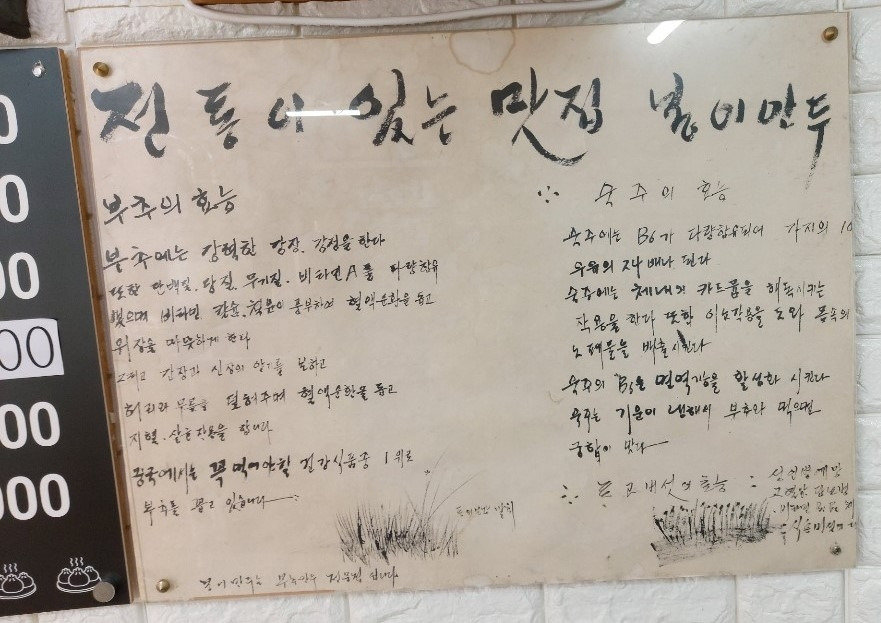 전통이 있는 맛집 봄이만두
부추의 효능
부추에는 강력한 강장. 강정을 한다
또한 단백질. 당질. 무기질. 비타민A를 다량함유
했으며 비타민 칼슘. 철분이 풍부하여 혈액순환을 돕고
위장을 따뜻하게 한다
그리고 간장과 신장의 양기를 보하고
허리와 무릎을 덥혀주며 혈액순환을 돕고
지혈. 작용을 합니다
중국에서는 꼭 먹어야할 건강식품중 1위로
부추를 꼽고 있습니다
숙주의 효능
숙주에는 B6가 다량함유되어 가지의 10
우유의 24배나 된다
숙주에는 체내의 카드뮴을 해독시키는
작용을 한다 또한 이뇨작용을 도와 몸속의
노폐물을 배출시킨다
숙주의 B6는 면역기능을 활성화 시킨다
숙주는 기운이 냉해서 부추와 먹으면
궁합이 맞다
표고버섯의 효능 :
000